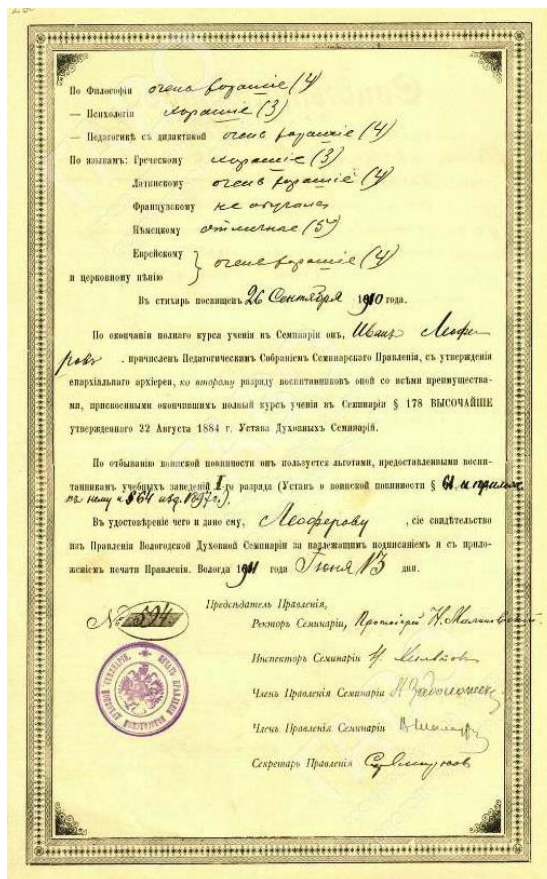 По Философіи очень хорошіе (4)
— Психологіи хорошіе (3)
— Педагогикѣ съ дидактикой очень хорошіе (4)
По языкамъ: Греческому хорошіе (3)
Латинскому очень хорошіе (4)
Французскому не обучался
Нѣмецкому отличные (5)
Еврейскому
и церковному пѣнію } очень хорошіе (4)
Въ стихарь посвященъ 26 Сентября 1910 года.
По окончаніи полнаго курса ученія въ Семинаріи онъ, Иванъ Леофе-
ровъ, причисленъ Педагогическимъ Собраніемъ Семинарскаго Правленія, съ утвержденія
епархіальнаго архіерея, ко второму разряду воспитанниковъ оной со всѣми преимущества-
ми, присвоенными окончившимъ полный курсъ ученія въ Семинаріи § 178 ВЫСОЧАЙШЕ
утвержденнаго 22 Августа 1884 г. Устава Духовныхъ Семинарій.
По отбыванію воинской повинности онъ пользуется льготами, предоставленными воспи-
танникамъ учебныхъ заведеній I-го разряда (Уставъ о воинской повинности § 61, и прилож.
къ нему и § 64 изд. 1897 г.).
Въ удостовѣреніе чего и дано ему, Леоферову, сіе свидѣтельство
изъ Правленія Вологодской Духовной Семинаріи за надлежащимъ подписаніемъ и съ прило-
женіемъ печати Правленія. Вологда 1911 года Іюня 13 дня.
№ 594.
Предсѣдатель Правленія,
Ректоръ Семинаріи, Протоіерей Н. Малиновскій.
Инспекторъ Семинаріи
Членъ Правленія Семинаріи
Членъ Правленія Семинаріи
Секретарь Правленія
ПЕЧАТЬ ПРАВЛЕНІЯ ВОЛОГОДСКОЙ ДУХОВНОЙ СЕМИНАРІИ